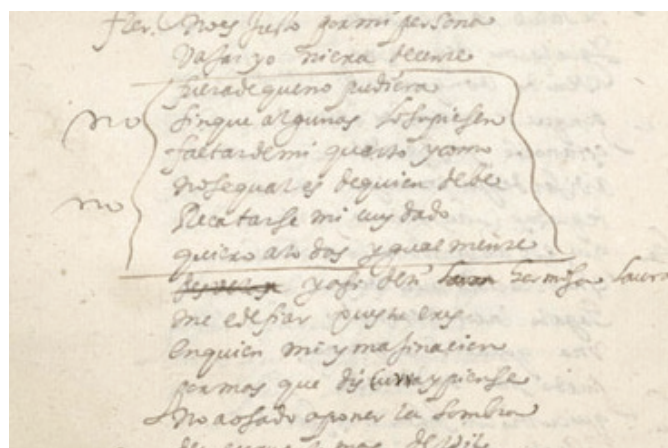 fler. No es justo por mi persona
Vajar yo ni era decente
fuera de que no pudiera
no
sin que algunas lo supiesen
faltar de mi quarto y como
no
no se qual es de quien debe
Recatarse mi cuydado
quiero a todas ygualmente
y asi de ti hermosa laura
me e de fiar pues tu eres
en quien mi ymaginacion
por mas que discurra y piense
No a osado a poner la sombra